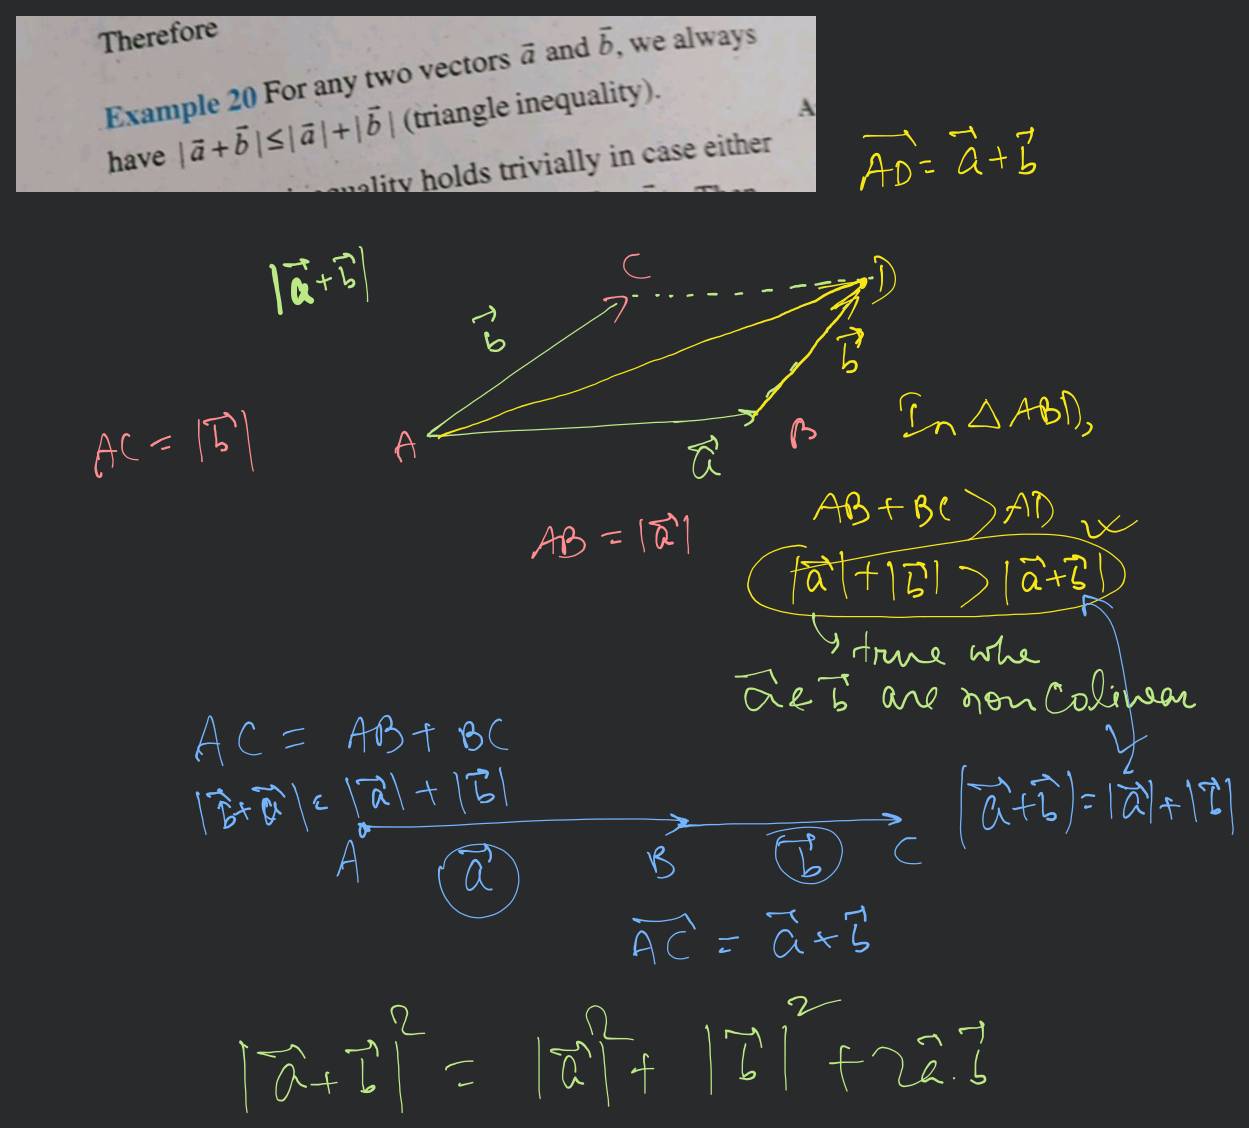 Therefore
Example 20 For any two vectors a⃗ and b⃗, we always
have |a⃗+b⃗|≤|a⃗|+|b⃗| (triangle inequality).
A
quality holds trivially in case either
AD⃗ = a⃗+b⃗
|a⃗+b⃗|
C
D
b⃗
b⃗
A
B
a⃗
In △ABD,
AC = |b⃗|
AB+BC > AD
AB = |a⃗|
|a⃗|+|b⃗| > |a⃗+b⃗|
true whe
a⃗ & b⃗ are non Colinear
AC = AB+BC
|b⃗+a⃗| = |a⃗|+|b⃗|
|a⃗+b⃗|=|a⃗|+|b⃗|
A
B
C
a⃗
b⃗
AC⃗ = a⃗+b⃗
|a⃗+b⃗|² = |a⃗|² + |b⃗|² + 2a⃗.b⃗